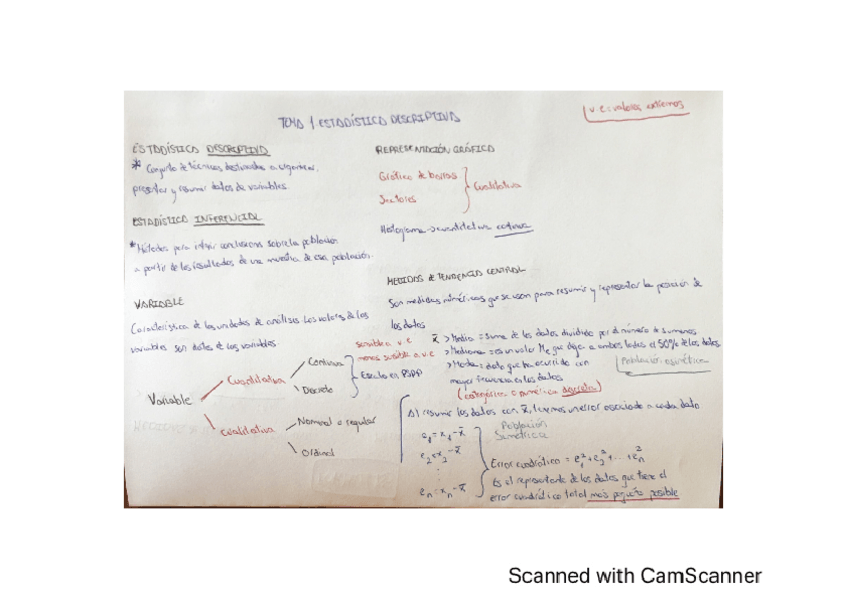 TEMA 1 ESTADÍSTICA DESCRIPTIVA
v.e: valores extremos
ESTADÍSTICA DESCRIPTIVA
* Conjunto de técnicas destinadas a organizar,
presentar y resumir datos de variables.
ESTADÍSTICA INFERENCIAL
*Métodos para inferir conclusiones sobre la población
a partir de los resultados de una muestra de esa población.
VARIABLE
Característica de las unidades de análisis. Los valores de las
variables son datos de las variables.
Variable
Cuantitativa
Continua
Discreta
Escala en
Cualitativa
Nominal o regular
Ordinal
REPRESENTACIÓN GRÁFICA
Gráfico de barras
Sectores
Cualitativa
Histograma → cuantitativa continua
MEDIDAS DE TENDENCIA CENTRAL
Son medidas numéricas que se usan para resumir y representar la posición de
los datos
sensible a v.e x̄ > Media = suma de los datos dividido por el número de sumandos
menos sensible a v.e > Mediana = es un valor Me que deja a ambos lados el 50% de los datos
> Moda = dato que ha ocurrido con
mayor frecuencia en los datos
Población asimétrica
(categórica o numérica discreta)
Al resumir los datos con x̄, tenemos un error asociado a cada dato
Población
Simétrica
e₁ = x₁ - x̄
e₂ = x₂ - x̄
⋮
eₙ = xₙ - x̄
Error cuadrático = e₁² + e₂² + ... + eₙ²
Es el representante de los datos que tiene el
error cuadrático total más pequeño posible
Scanned with CamScanner